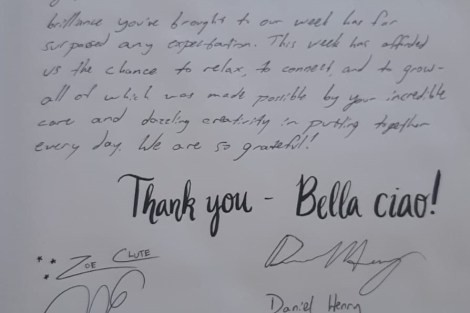 brilliance you've brought to our week has far
surpased any expectation. This week has afforded
us the chance to relax, to connect, and to grow-
all of which was made possible by your incredible
care and dazzling creativity in putting together
every day. We are so grateful!
Thank you - Bella ciao!
ZOE CLUTE
Daniel Henry